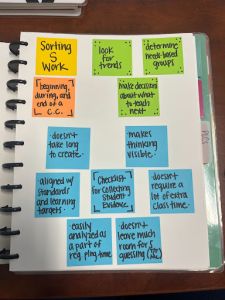 Sorting
S
Work
look
for
trends
determine
need-based
groups
beginning,
during, and
end of a
C.C.
make decisions
about what
to teach
next
doesn't
take long
to create.
makes
thinking
visible.
aligned w/
standards
and learning
targets.
Checklist
for Collecting
Student
Evidence
doesn't
require a
lot of extra
class time.
easily
analyzed as
a part of
reg. plng time
doesn't
leave much
room for
guessing